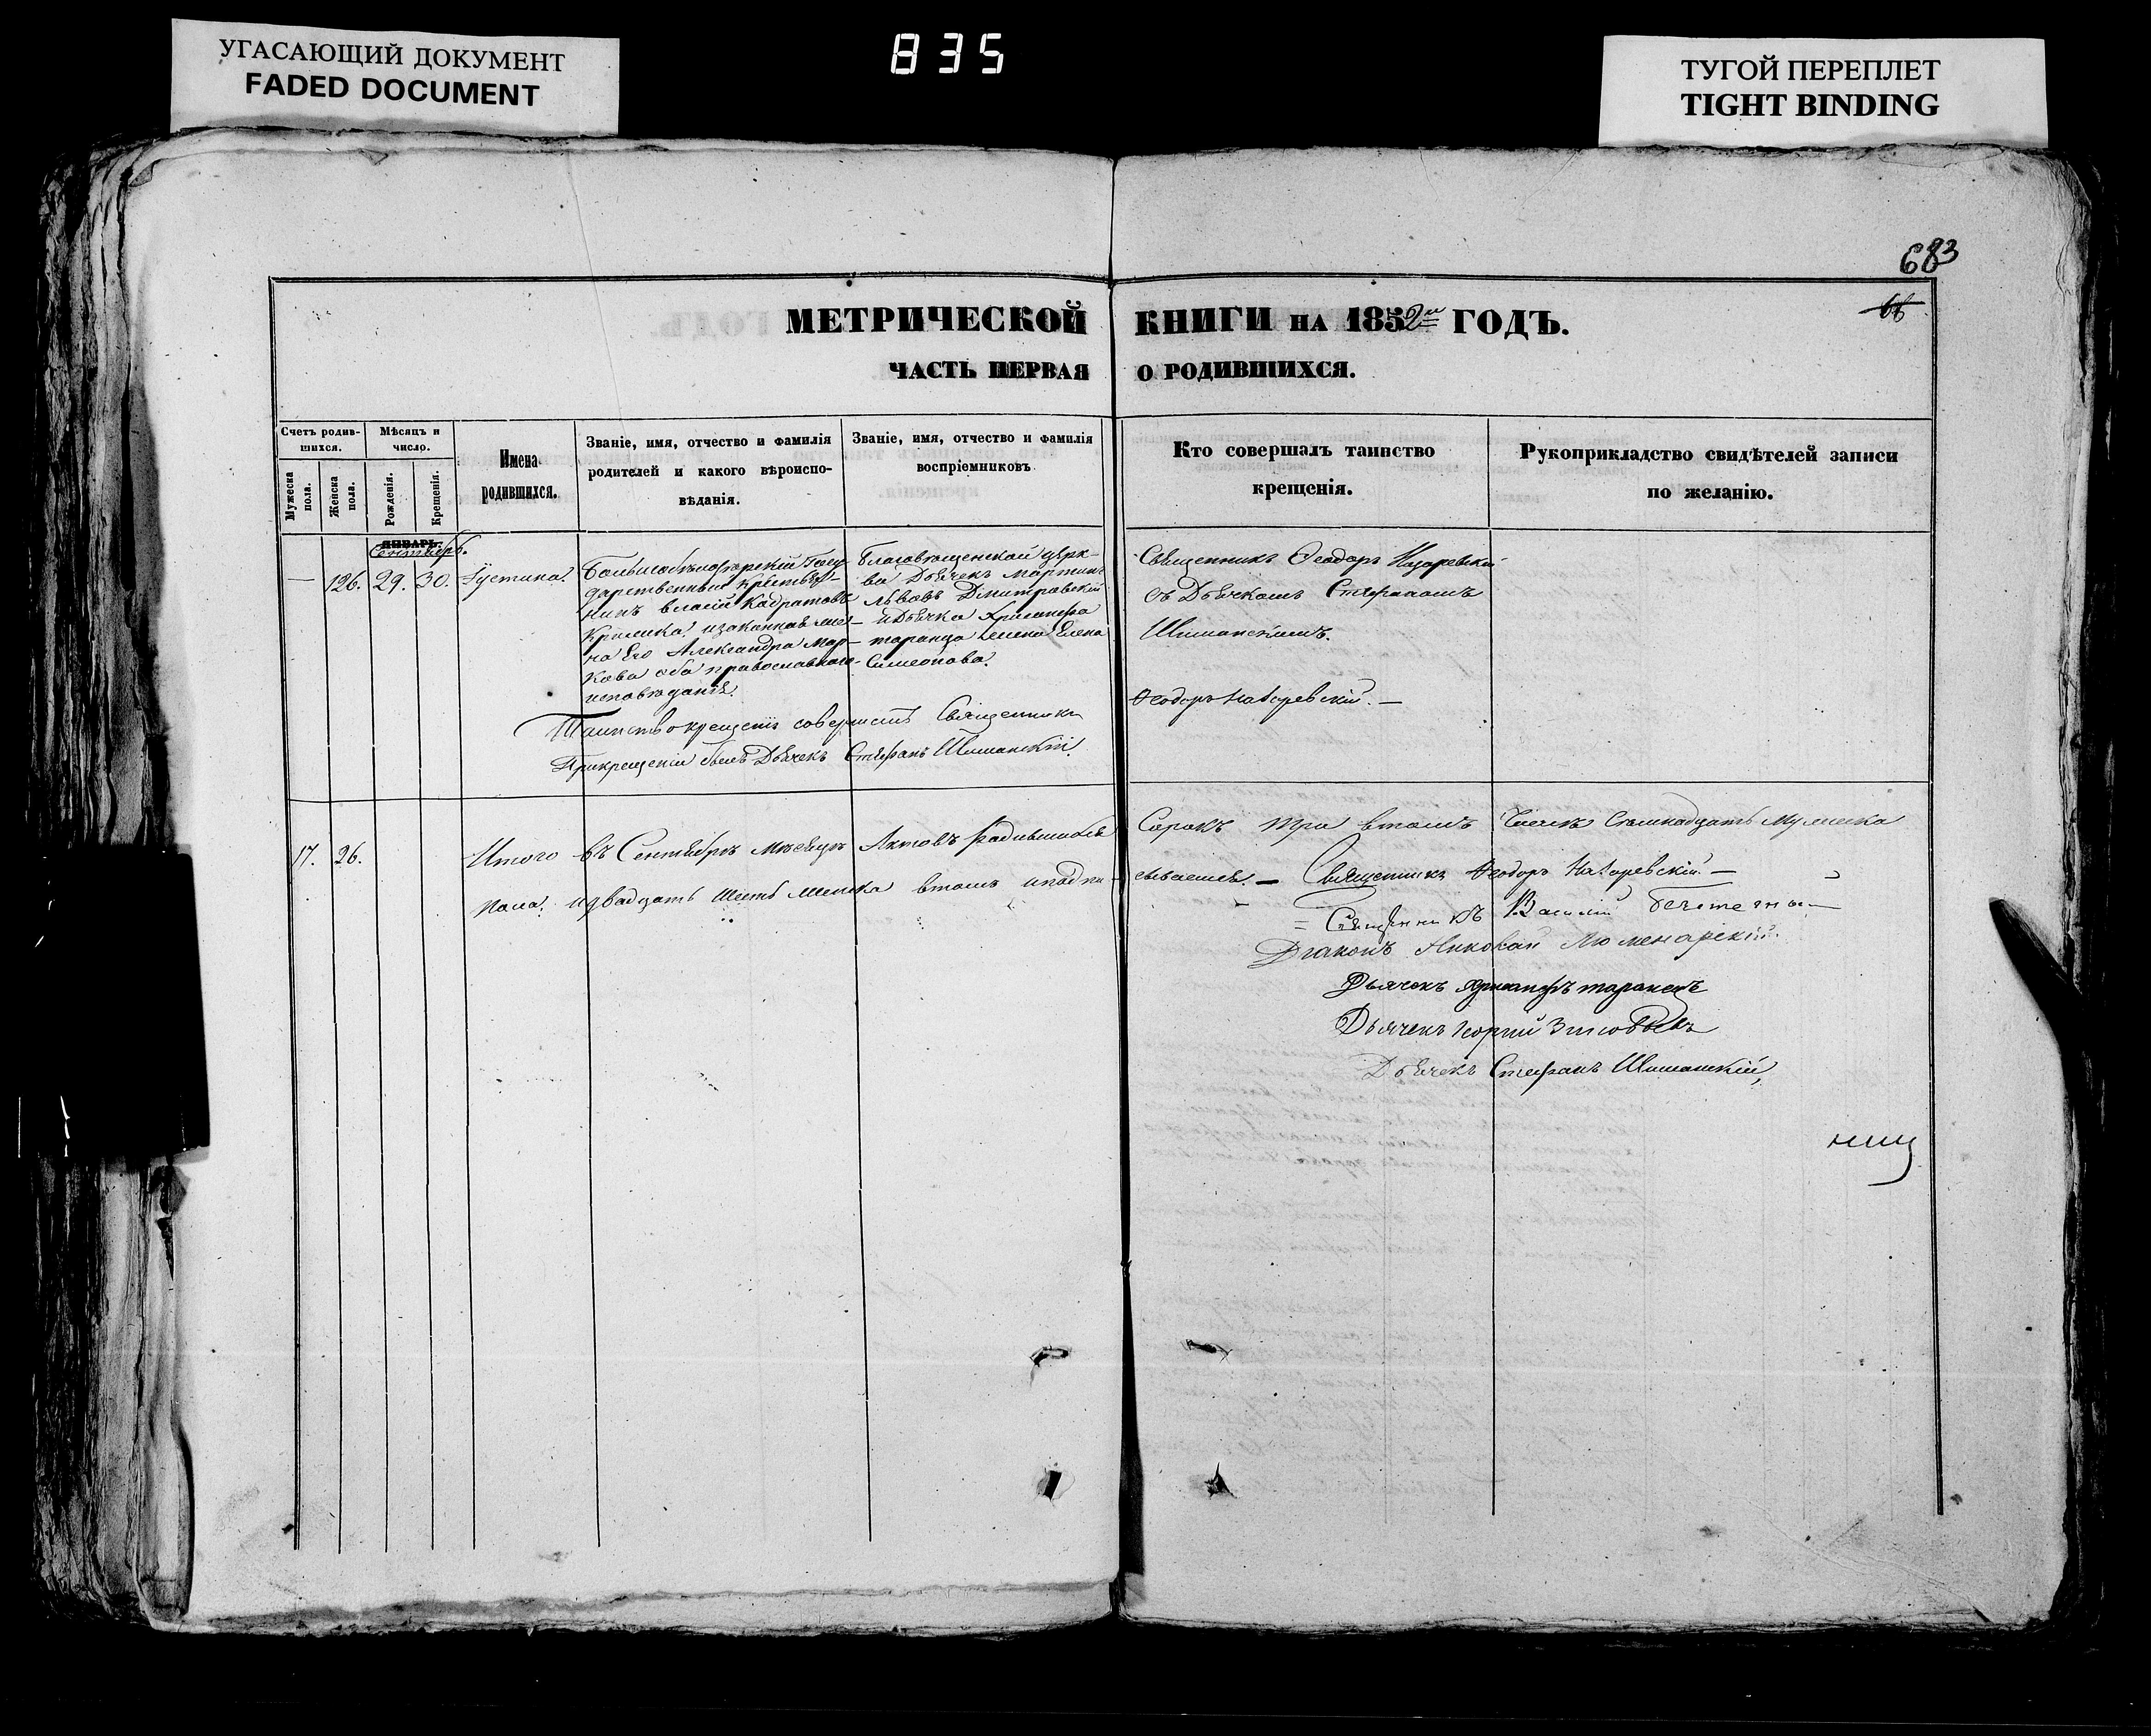 УГАСАЮЩИЙ ДОКУМЕНТ
FADED DOCUMENT
835
ТУГОЙ ПЕРЕПЛЕТ
TIGHT BINDING
683
МЕТРИЧЕСКОЙ КНИГИ НА 1852 ГОДЪ.
ЧАСТЬ ПЕРВАЯ О РОДИВШИХСЯ.
Счетъ родив-
шихся.
Мужеска
пола.
Женска
пола.
Мѣсяцъ и
число.
Рожденія.
Крещенія.
Имена
родившихся.
Званіе, имя, отчество и фамилія
родителей и какого вѣроиспо-
вѣданія.
Званіе, имя, отчество и фамилія
воспріемниковъ
Кто совершалъ таинство
крещенія.
Рукоприкладство свидѣтелей записи
по желанію.
ЯНВАРЬ.
Сентябрь.
— 126. 29. 30. Іустина.
Государственный крестья-
нинъ
Кришка и законная же-
на Его Александра Мар-
кова оба православнаго
исповѣданія.
Благовѣщенской церк-
ви Дьячекъ Мартинъ
Львовъ Дмитровскій
и Дьячка Хрисанфа
таранца жена Елена
Симеонова.
Священникъ Ѳеодоръ Назаревскій
съ Дьячкомъ Стефаномъ
Шиманскимъ.
Ѳеодоръ Назаревскій. —
Таинство крещенія совершилъ Священникъ
При крещеніи былъ Дьячекъ Стефанъ Шиманскій.
17. 26.
Итого въ Сентябрѣ Мѣсяцѣ Актовъ Родившихся Сорокъ три втомъ Числѣ Семнадцать Мужеска
пола. и двадцать шесть женска втомъ и подпи-сываемся. — Священникъ Ѳеодоръ Назаревскій. —
Священникъ Василій
Діаконъ Николай
Дьячокъ Хрисанфъ таранецъ
Дьячекъ Георгій
Дьячекъ Стефанъ Шиманскій,